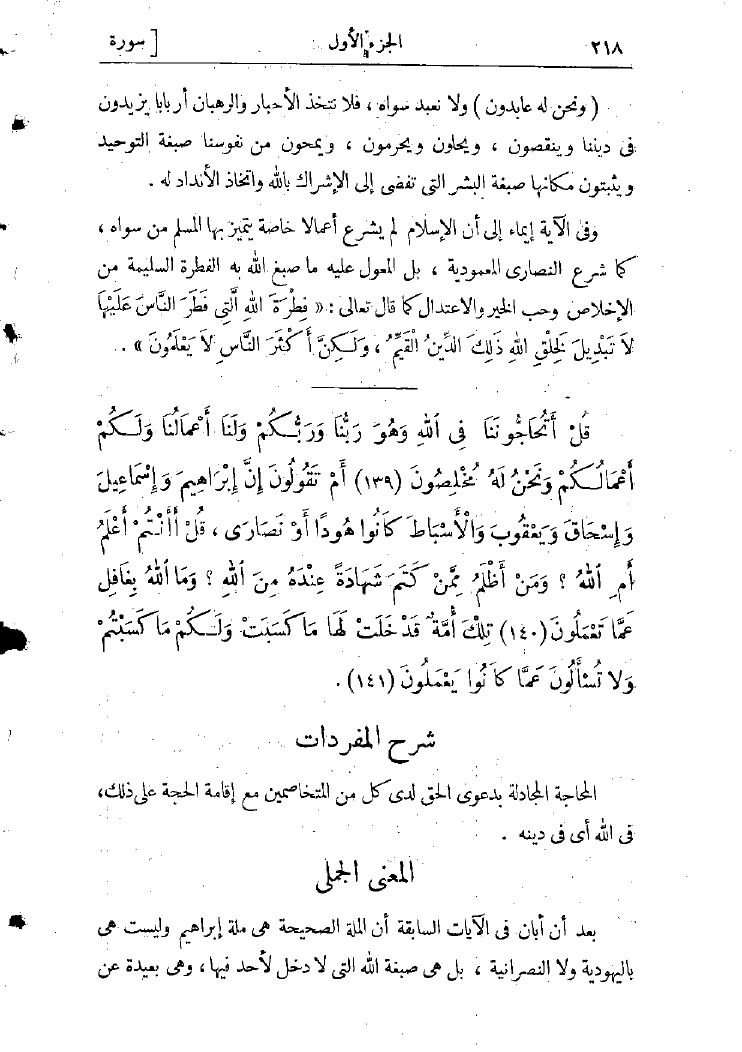 ٢١٨ الجزء الأول [ سورة
( ونحن له عابدون ) ولا نعبد سواه ، فلا نتخذ الأحبار والرهبان أربابا يزيدون
فى ديننا وينقصون ، ويحلون ويحرمون ، ويمحون من نفوسنا صبغة التوحيد
ويثبتون مكانها صبغة البشر التى تفضى إلى الإشراك بالله واتخاذ الأنداد له .
وفى الآية إيماء إلى أن الإسلام لم يشرع أعمالا خاصة يتميز بها المسلم من سواه ،
كما شرع النصارى المعمودية ، بل المعول عليه ما صبغ الله به الفطرة السليمة من
الإخلاص وحب الخير والاعتدال كما قال تعالى : « فِطْرَةَ اللهِ الَّتِي فَطَرَ النَّاسَ عَلَيْهَا
لاَ تَبْدِيلَ لِخَلْقِ اللهِ ذَلِكَ الدِّينُ الْقَيِّمُ ، وَلَكِنَّ أَكْثَرَ النَّاسِ لاَ يَعْلَمُونَ » .
قُلْ أَتُحَاجُّونَنَا فِي اللهِ وَهُوَ رَبُّنَا وَرَبُّكُمْ وَلَنَا أَعْمَالُنَا وَلَكُمْ
أَعْمَالُكُمْ وَنَحْنُ لَهُ مُخْلِصُونَ (١٣٩) أَمْ تَقُولُونَ إِنَّ إِبْرَاهِيمَ وَإِسْمَاعِيلَ
وَإِسْحَاقَ وَيَعْقُوبَ وَالْأَسْبَاطَ كَانُوا هُودًا أَوْ نَصَارَى ، قُلْ أَأَنْتُمْ أَعْلَمُ
أَمِ اللهُ ؟ وَمَنْ أَظْلَمُ مِمَّنْ كَتَمَ شَهَادَةً عِنْدَهُ مِنَ اللهِ ؟ وَمَا اللهُ بِغَافِلٍ
عَمَّا تَعْمَلُونَ (١٤٠) تِلْكَ أُمَّةٌ قَدْ خَلَتْ لَهَا مَا كَسَبَتْ وَلَكُمْ مَا كَسَبْتُمْ
وَلَا تُسْأَلُونَ عَمَّا كَانُوا يَعْمَلُونَ (١٤١) .
شرح المفردات
المحاجة المجادلة بدعوى الحق لدى كل من المتخاصمين مع إقامة الحجة على ذلك ،
فى الله أى فى دينه .
المعنى الجملى
بعد أن أبان فى الآيات السابقة أن الملة الصحيحة هى ملة إبراهيم وليست هى
باليهودية ولا النصرانية ، بل هى صبغة الله التى لا دخل لأحد فيها ، وهى بعيدة عن